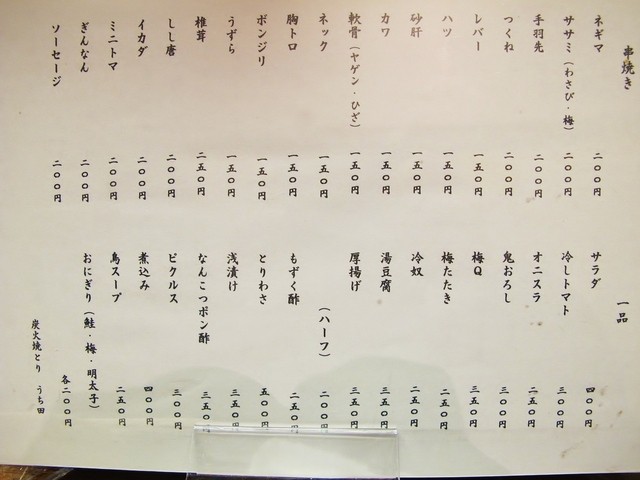 串焼き
ネギマ 二〇〇円
ササミ（わさび・梅） 二〇〇円
手羽先 二〇〇円
つくね 二〇〇円
レバー 一五〇円
ハツ 一五〇円
砂肝 一五〇円
カワ 一五〇円
軟骨（ヤゲン・ひざ） 一五〇円
ネック 一五〇円
胸トロ 一五〇円
ボンジリ 一五〇円
うずら 一五〇円
椎茸 二五〇円
しし唐 二〇〇円
イカダ 二〇〇円
ミニトマ 二〇〇円
ぎんなん 二〇〇円
ソーセージ 二〇〇円
一品
サラダ 四〇〇円
冷しトマト 三〇〇円
オニスラ 二五〇円
鬼おろし 三〇〇円
梅Q 三五〇円
梅たたき 二五〇円
冷奴 二五〇円
湯豆腐 三五〇円
厚揚げ 三五〇円
（ハーフ） 二〇〇円
もずく酢 二五〇円
とりわさ 五〇〇円
浅漬け 三五〇円
なんこつポン酢 三五〇円
ピクルス 三〇〇円
煮込み 四〇〇円
鳥スープ 二五〇円
おにぎり（鮭・梅・明太子） 各二〇〇円
炭火焼とり うち田